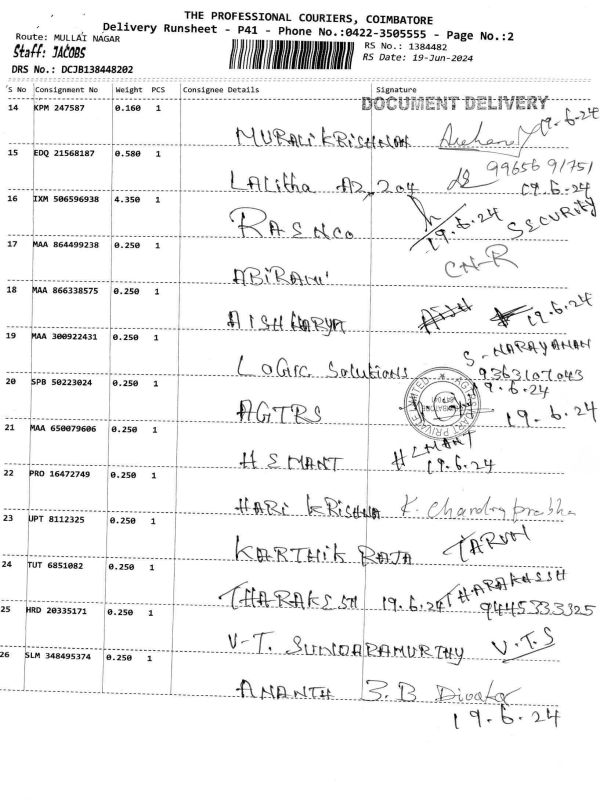 THE PROFESSIONAL COURIERS, COIMBATORE
Delivery Runsheet - P41 - Phone No.:0422-3505555 - Page No.:2
Route: MULLAI NAGAR
Staff: JACOBS
RS No.: 1384482
RS Date: 19-Jun-2024
DRS No.: DCJB138448202
S No Consignment No Weight PCS Consignee Details Signature
DOCUMENT DELIVERY
14 KPM 247587 0.160 1
MURALI KRISHNAN 19.6.24
15 EDQ 21568187 0.580 1
99656 91751
Lalitha A2-204 19.6.24
16 IXM 506596938 4.350 1
RASENCO 19.6.24 SECURITY
17 MAA 864499238 0.250 1
ABIRAMI CN-R
18 MAA 866338575 0.250 1
AISHWARYA 19.6.24
19 MAA 300922431 0.250 1
S. NARAYANAN
LOGIC Solutions 9363107043
20 SPB 50223024 0.250 1
19.6.24
AGTRS 19.6.24
21 MAA 650079606 0.250 1
HEMANT HEMANT
19.6.24
22 PRO 16472749 0.250 1
HARI KRISHNA K. Chandraprabha
23 UPT 8112325 0.250 1
KARTHIK RAJA TARUN
24 TUT 6851082 0.250 1
THARAKESH 19.6.24 THARAKESH
9445333325
25 HRD 20335171 0.250 1
V-T. SUNDARAMURTHY V.T.S
26 SLM 348495374 0.250 1
ANANTH 3.B
19.6.24